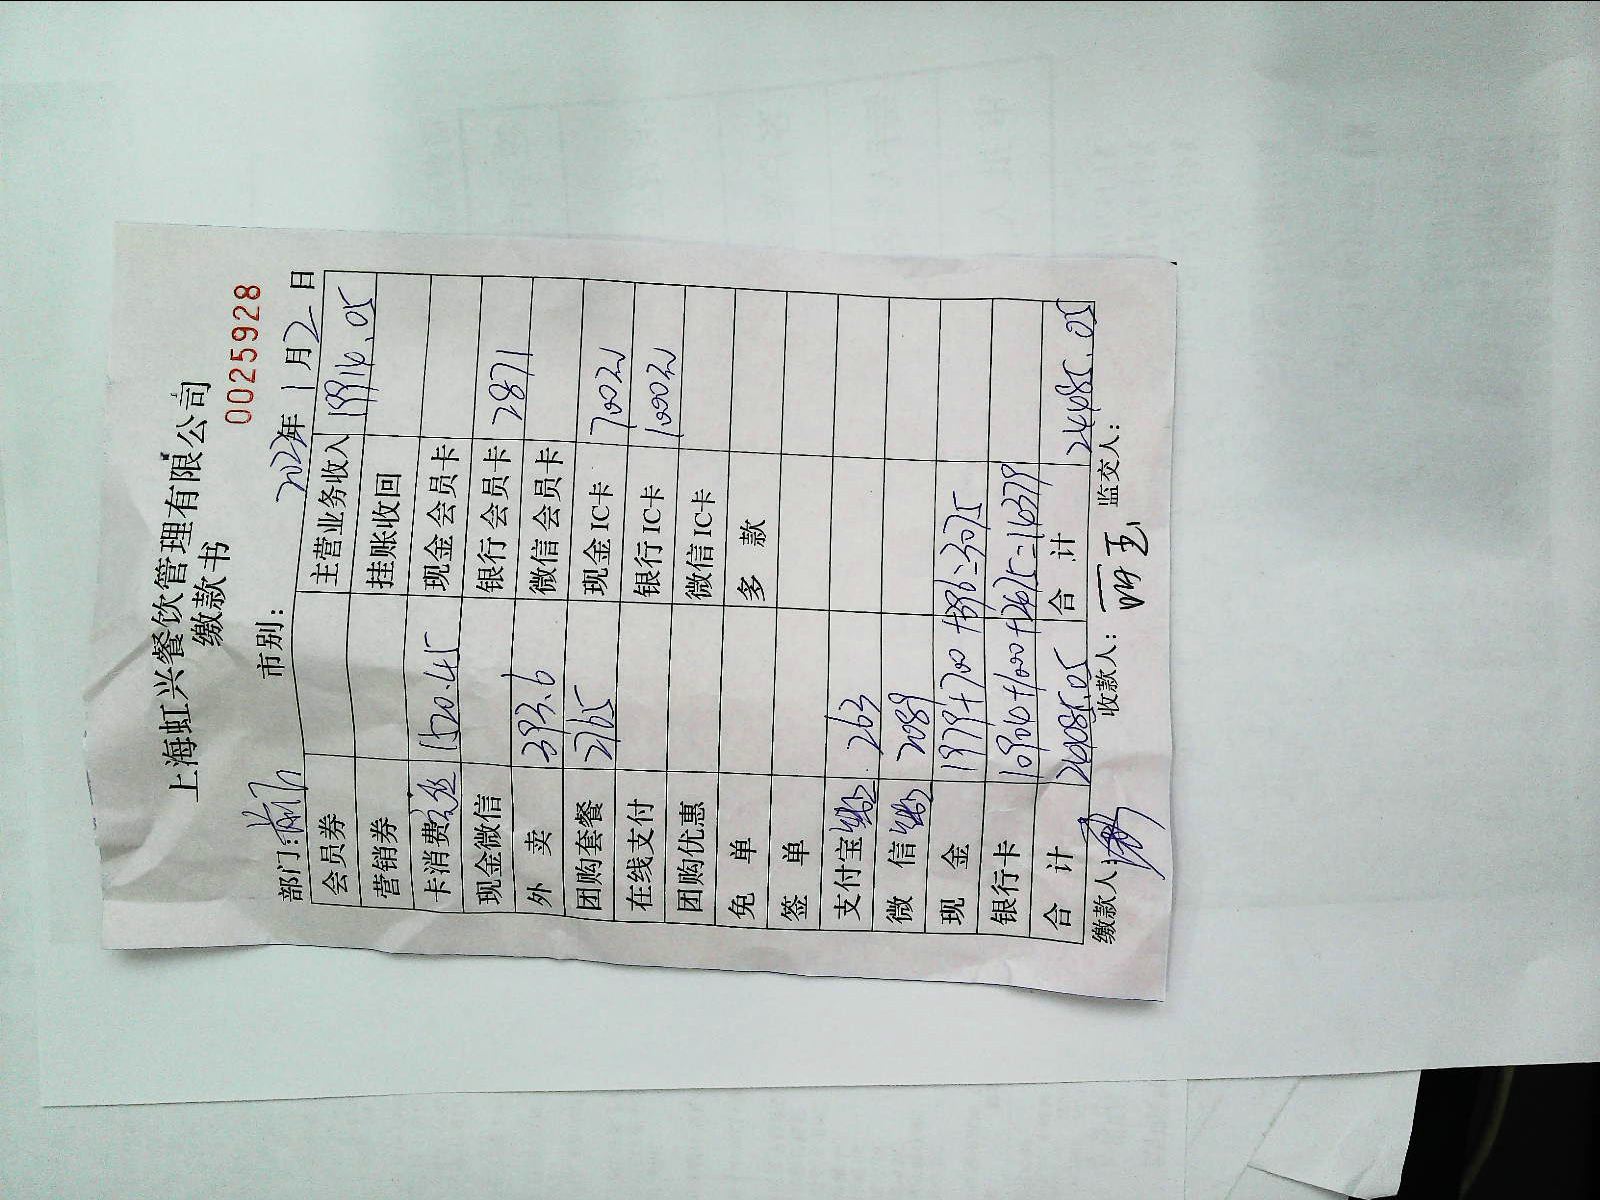 上海虹兴餐饮管理有限公司
缴款书
0025928
部门: 市别: 2022年1月2日
会员券 主营业务收入 19914.05
营销券 挂账收回
卡消费 1520.45 现金会员卡
现金微信 银行会员卡 2871
外卖 393.6 微信会员卡
团购套餐 2165 现金IC卡 700元
在线支付 银行IC卡 1000元
团购优惠 微信IC卡
免单 多款
签单
支付宝 263
微信 2089
现金 1979+700+396=3075
银行卡 10904+1000+2675=14379
合计 24485.05 合计 24485.05
缴款人: 收款人: 监交人: